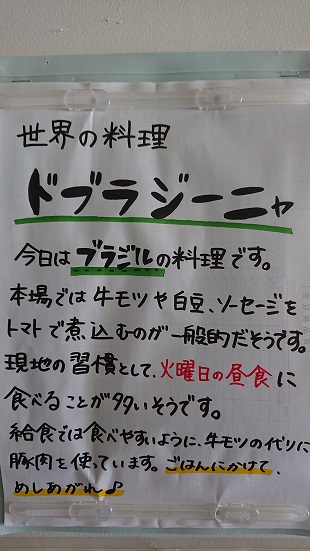 世界の料理
ドブラジーニャ
今日はブラジルの料理です。
本場では牛モツや白豆、ソーセージを
トマトで煮込むのが一般的だそうです。
現地の習慣として、火曜日の昼食に
食べることが多いそうです。
給食では食べやすいように、牛モツの代りに
豚肉を使っています。ごはんにかけて、
めしあがれ♪